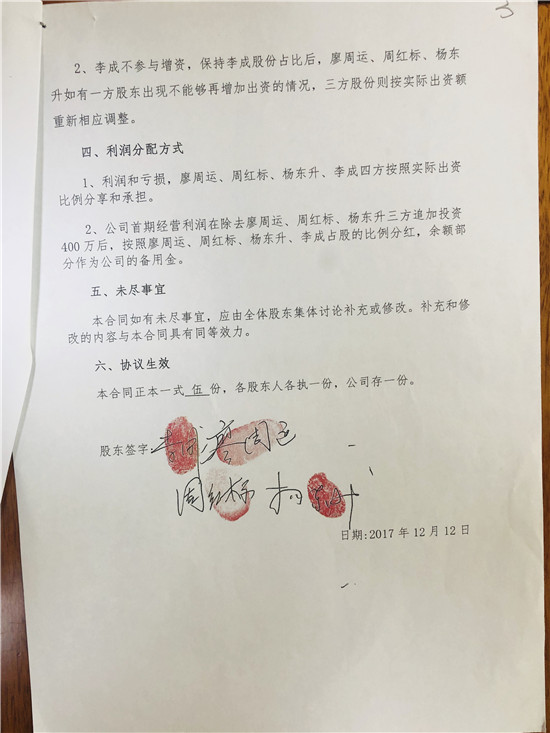 3
2、李成不参与增资，保持李成股份占比后，廖周运、周红标、杨东
升如有一方股东出现不能够再增加出资的情况，三方股份则按实际出资额
重新相应调整。
四、利润分配方式
1、利润和亏损，廖周运、周红标、杨东升、李成四方按照实际出资
比例分享和承担。
2、公司首期经营利润在除去廖周运、周红标、杨东升三方追加投资
400万后，按照廖周运、周红标、杨东升、李成占股的比例分红，余额部
分作为公司的备用金。
五、未尽事宜
本合同如有未尽事宜，应由全体股东集体讨论补充或修改。补充和修
改的内容与本合同具有同等效力。
六、协议生效
本合同正本一式 伍 份，各股东人各执一份，公司存一份。
股东签字 李成 廖周运
周红标 杨东升
日期:2017年12月12日